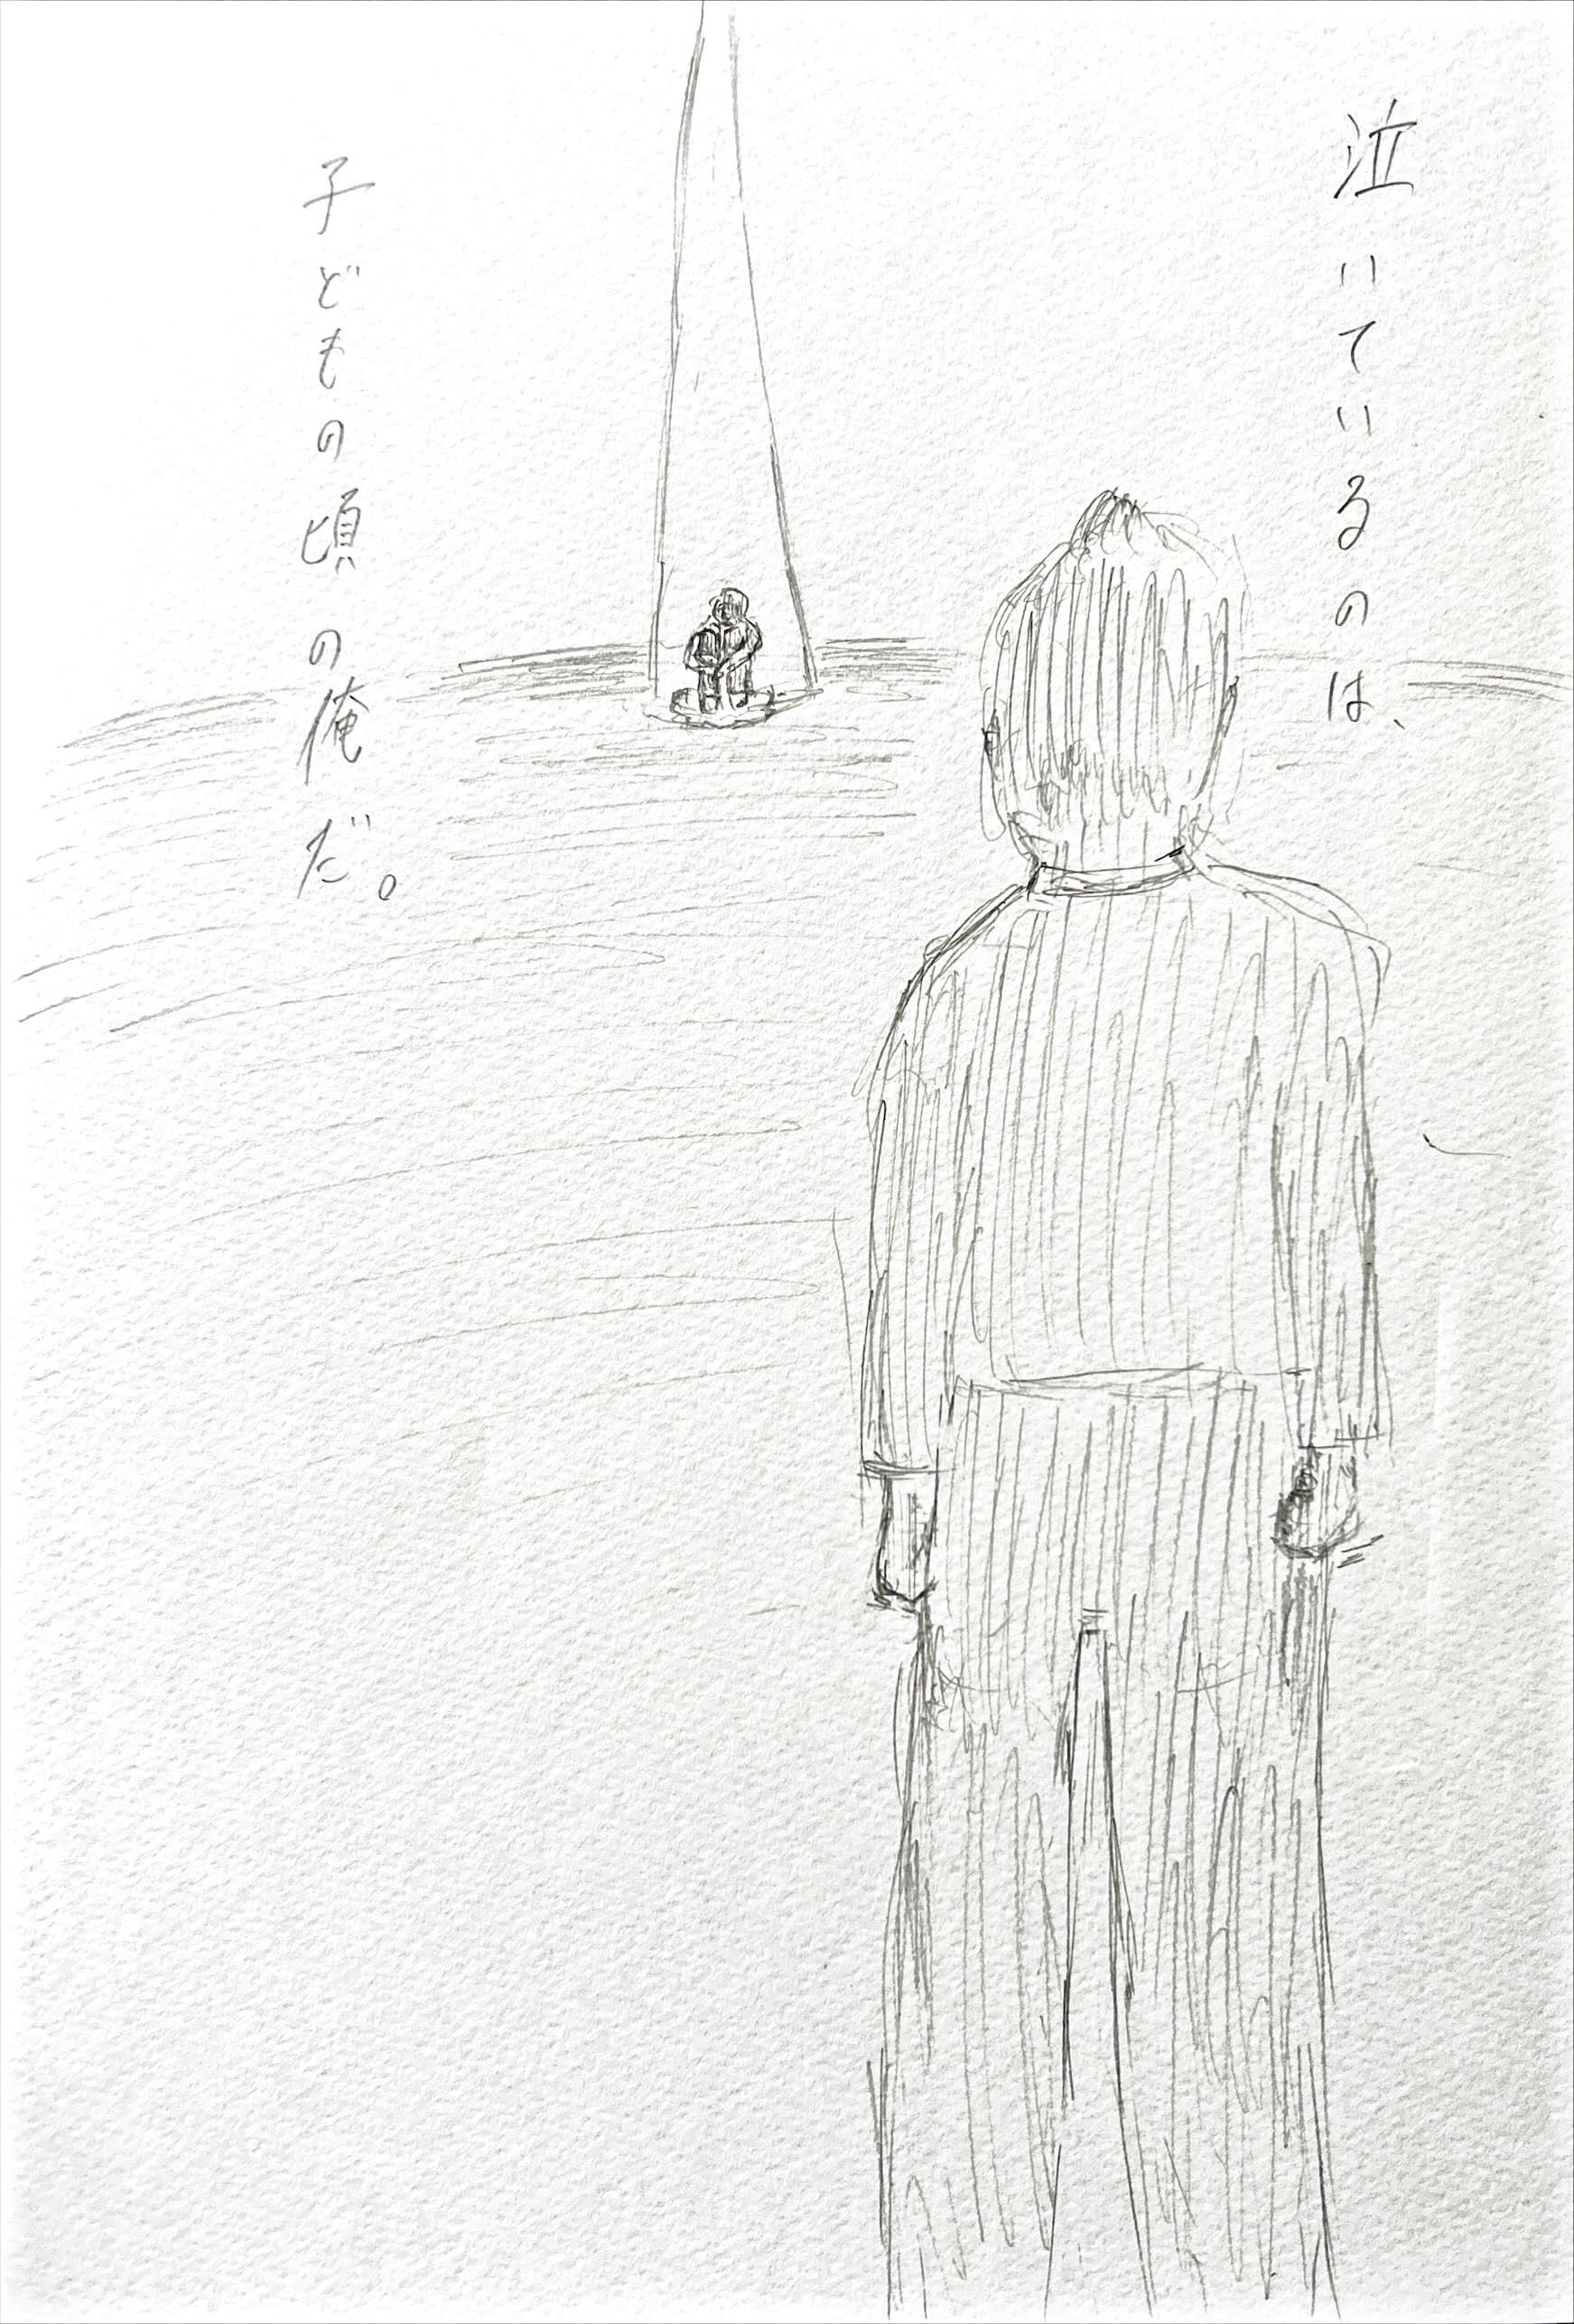 泣いているのは、
子どもの頃の俺だ。